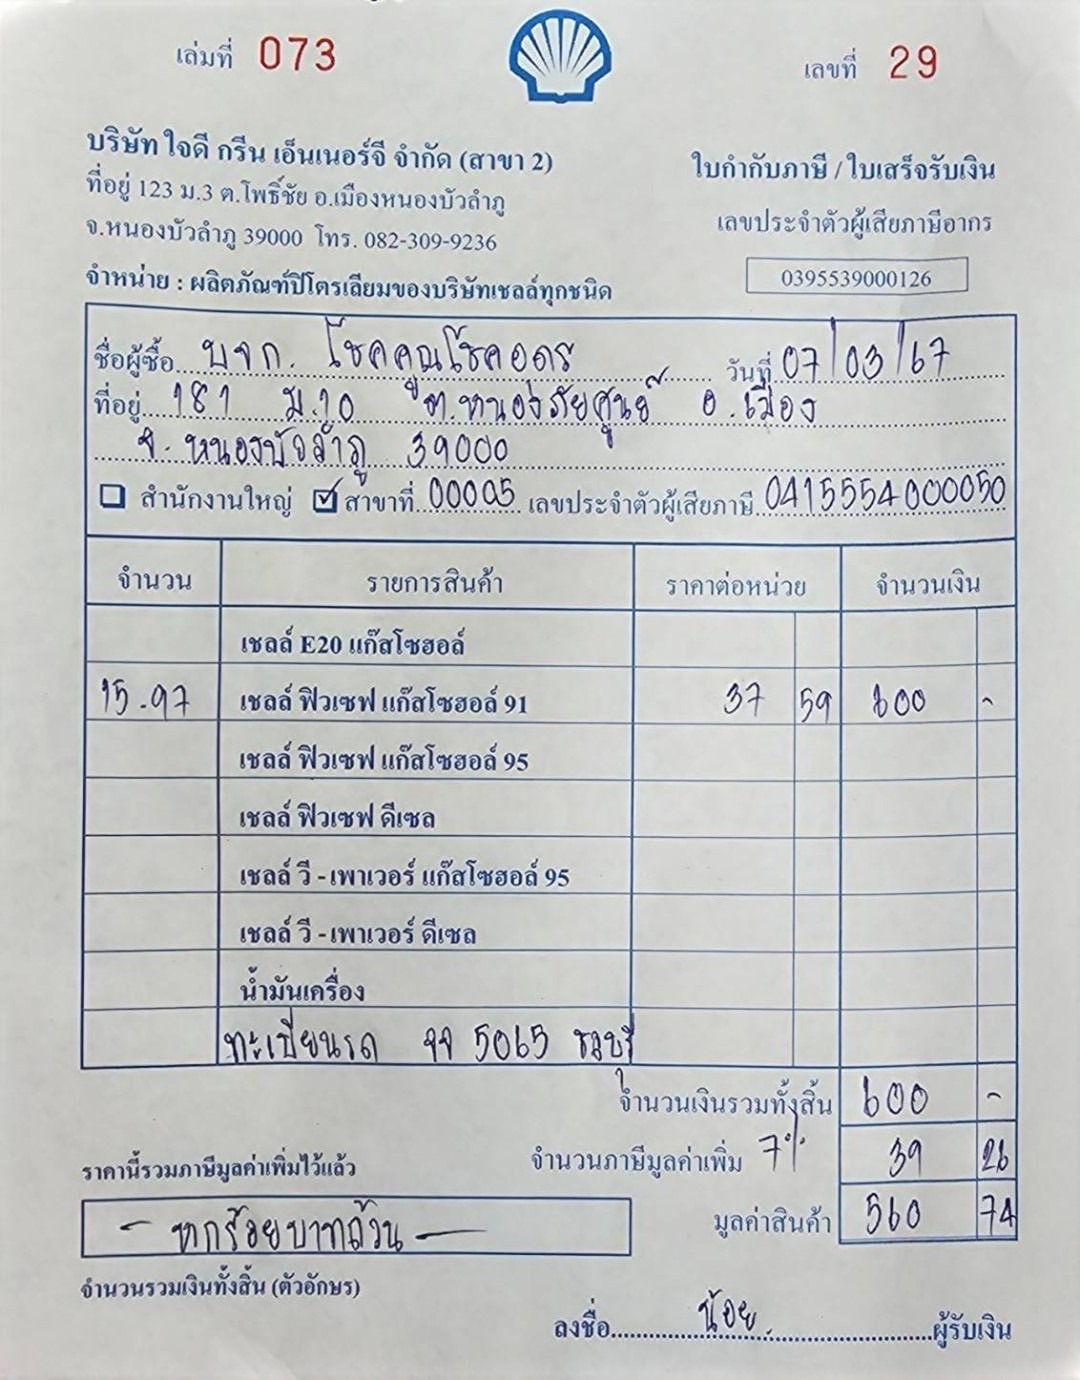 เล่มที่ 073
เลขที่ 29
บริษัท ใจดี กรีน เอ็นเนอร์จี จำกัด (สาขา 2)
ที่อยู่ 123 ม.3 ต.โพธิ์ชัย อ.เมืองหนองบัวลำภู
จ.หนองบัวลำภู 39000 โทร. 082-309-9236
จำหน่าย : ผลิตภัณฑ์ปิโตรเลียมของบริษัทเชลล์ทุกชนิด
ใบกำกับภาษี / ใบเสร็จรับเงิน
เลขประจำตัวผู้เสียภาษีอากร
0395539000126
ชื่อผู้ซื้อ บจก. โชคคูณโชคอดร วันที่ 07/03/67
ที่อยู่ 181 ม.10 ต.หนองภัยศูนย์ อ.เมือง
จ.หนองบัวลำภู 39000
สำนักงานใหญ่ สาขาที่ 00005 เลขประจำตัวผู้เสียภาษี 0415554000050
จำนวน รายการสินค้า ราคาต่อหน่วย จำนวนเงิน
เชลล์ E20 แก๊สโซฮอล์
15.97 เชลล์ ฟิวเซฟ แก๊สโซฮอล์ 91 37 59 600 -
เชลล์ ฟิวเซฟ แก๊สโซฮอล์ 95
เชลล์ ฟิวเซฟ ดีเซล
เชลล์ วี - เพาเวอร์ แก๊สโซฮอล์ 95
เชลล์ วี - เพาเวอร์ ดีเซล
น้ำมันเครื่อง
ทะเบียนรถ จจ 5065 ชลบุรี
จำนวนเงินรวมทั้งสิ้น 600 -
ราคานี้รวมภาษีมูลค่าเพิ่มไว้แล้ว
จำนวนภาษีมูลค่าเพิ่ม 7% 39 26
มูลค่าสินค้า 560 74
- หกร้อยบาทถ้วน -
จำนวนรวมเงินทั้งสิ้น (ตัวอักษร)
ลงชื่อ น้อย ผู้รับเงิน